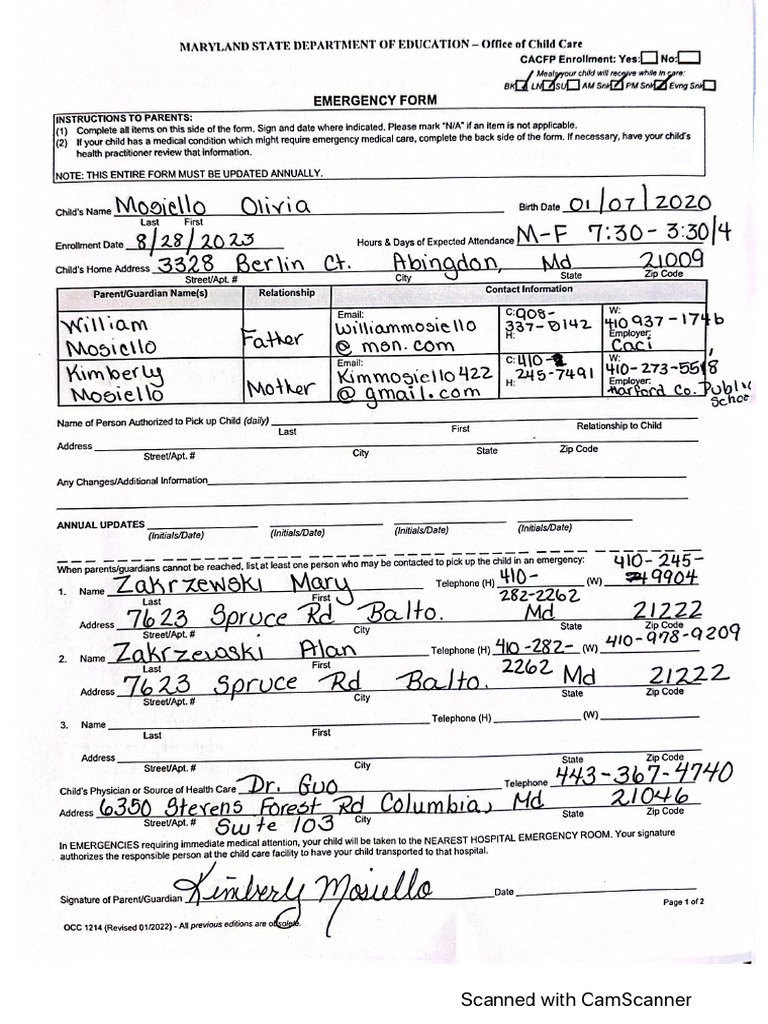 MARYLAND STATE DEPARTMENT OF EDUCATION – Office of Child Care
CACFP Enrollment: Yes: No:
Meals your child will receive while in care:
BK LN SU AM Snk PM Snk Evng Snk
EMERGENCY FORM
INSTRUCTIONS TO PARENTS:
(1) Complete all items on this side of the form. Sign and date where indicated. Please mark "N/A" if an item is not applicable.
(2) If your child has a medical condition which might require emergency medical care, complete the back side of the form. If necessary, have your child's
health practitioner review that information.
NOTE: THIS ENTIRE FORM MUST BE UPDATED ANNUALLY.
Child's Name Mosiello Olivia Birth Date 01/07/2020
Last First
Enrollment Date 8/28/2023 Hours & Days of Expected Attendance M-F 7:30-3:30/4
Child's Home Address 3328 Berlin Ct. Abingdon, Md 21009
Street/Apt. # City State Zip Code
Parent/Guardian Name(s) Relationship Contact Information
William Mosiello Father Email: williammosiello@msn.com C: 908-337-0142 H: W: 410 937-1746 Employer: Caci
Kimberly Mosiello Mother Email: Kimmosiello422@gmail.com C: 410-245-7491 H: W: 410-273-5518 Employer: Harford Co. Public
Name of Person Authorized to Pick up Child (daily)
Last First Relationship to Child
Address
Street/Apt. # City State Zip Code
Any Changes/Additional Information
ANNUAL UPDATES
(Initials/Date) (Initials/Date) (Initials/Date) (Initials/Date)
When parents/guardians cannot be reached, list at least one person who may be contacted to pick up the child in an emergency:
1. Name Zakrzewski Mary Telephone (H) 410-282-2262 (W) 410-245-9904
Last First
Address 7623 Spruce Rd Balto. Md 21222
Street/Apt. # City State Zip Code
2. Name Zakrzewski Alan Telephone (H) 410-282-2262 (W) 410-978-9209
Last First
Address 7623 Spruce Rd Balto. Md 21222
Street/Apt. # City State Zip Code
3. Name Telephone (H) (W)
Last First
Address
Street/Apt. # City State Zip Code
Child's Physician or Source of Health Care Dr. Guo Telephone 443-367-4740
Address 6350 Stevens Forest Rd Columbia, Md 21046
Street/Apt. # Suite 103 City State Zip Code
In EMERGENCIES requiring immediate medical attention, your child will be taken to the NEAREST HOSPITAL EMERGENCY ROOM. Your signature
authorizes the responsible person at the child care facility to have your child transported to that hospital.
Signature of Parent/Guardian Kimberly Mosiello Date
Page 1 of 2
OCC 1214 (Revised 01/2022) - All previous editions are obsolete.
Scanned with CamScanner